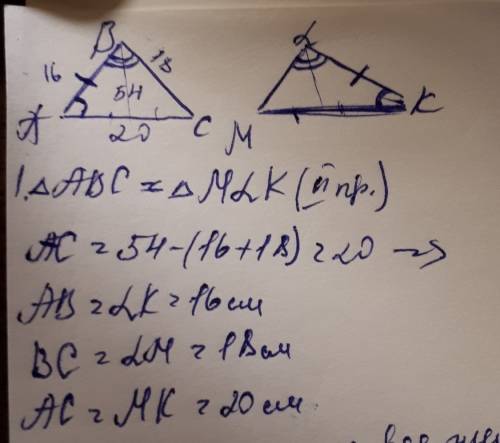 B L
16 18
54
A 20 C M K
1. △ABC = △MLK (II пр.)
AC = 54-(16+18) = 20 →
AB = LK = 16 см
BC = LM = 18 см
AC = MK = 20 см